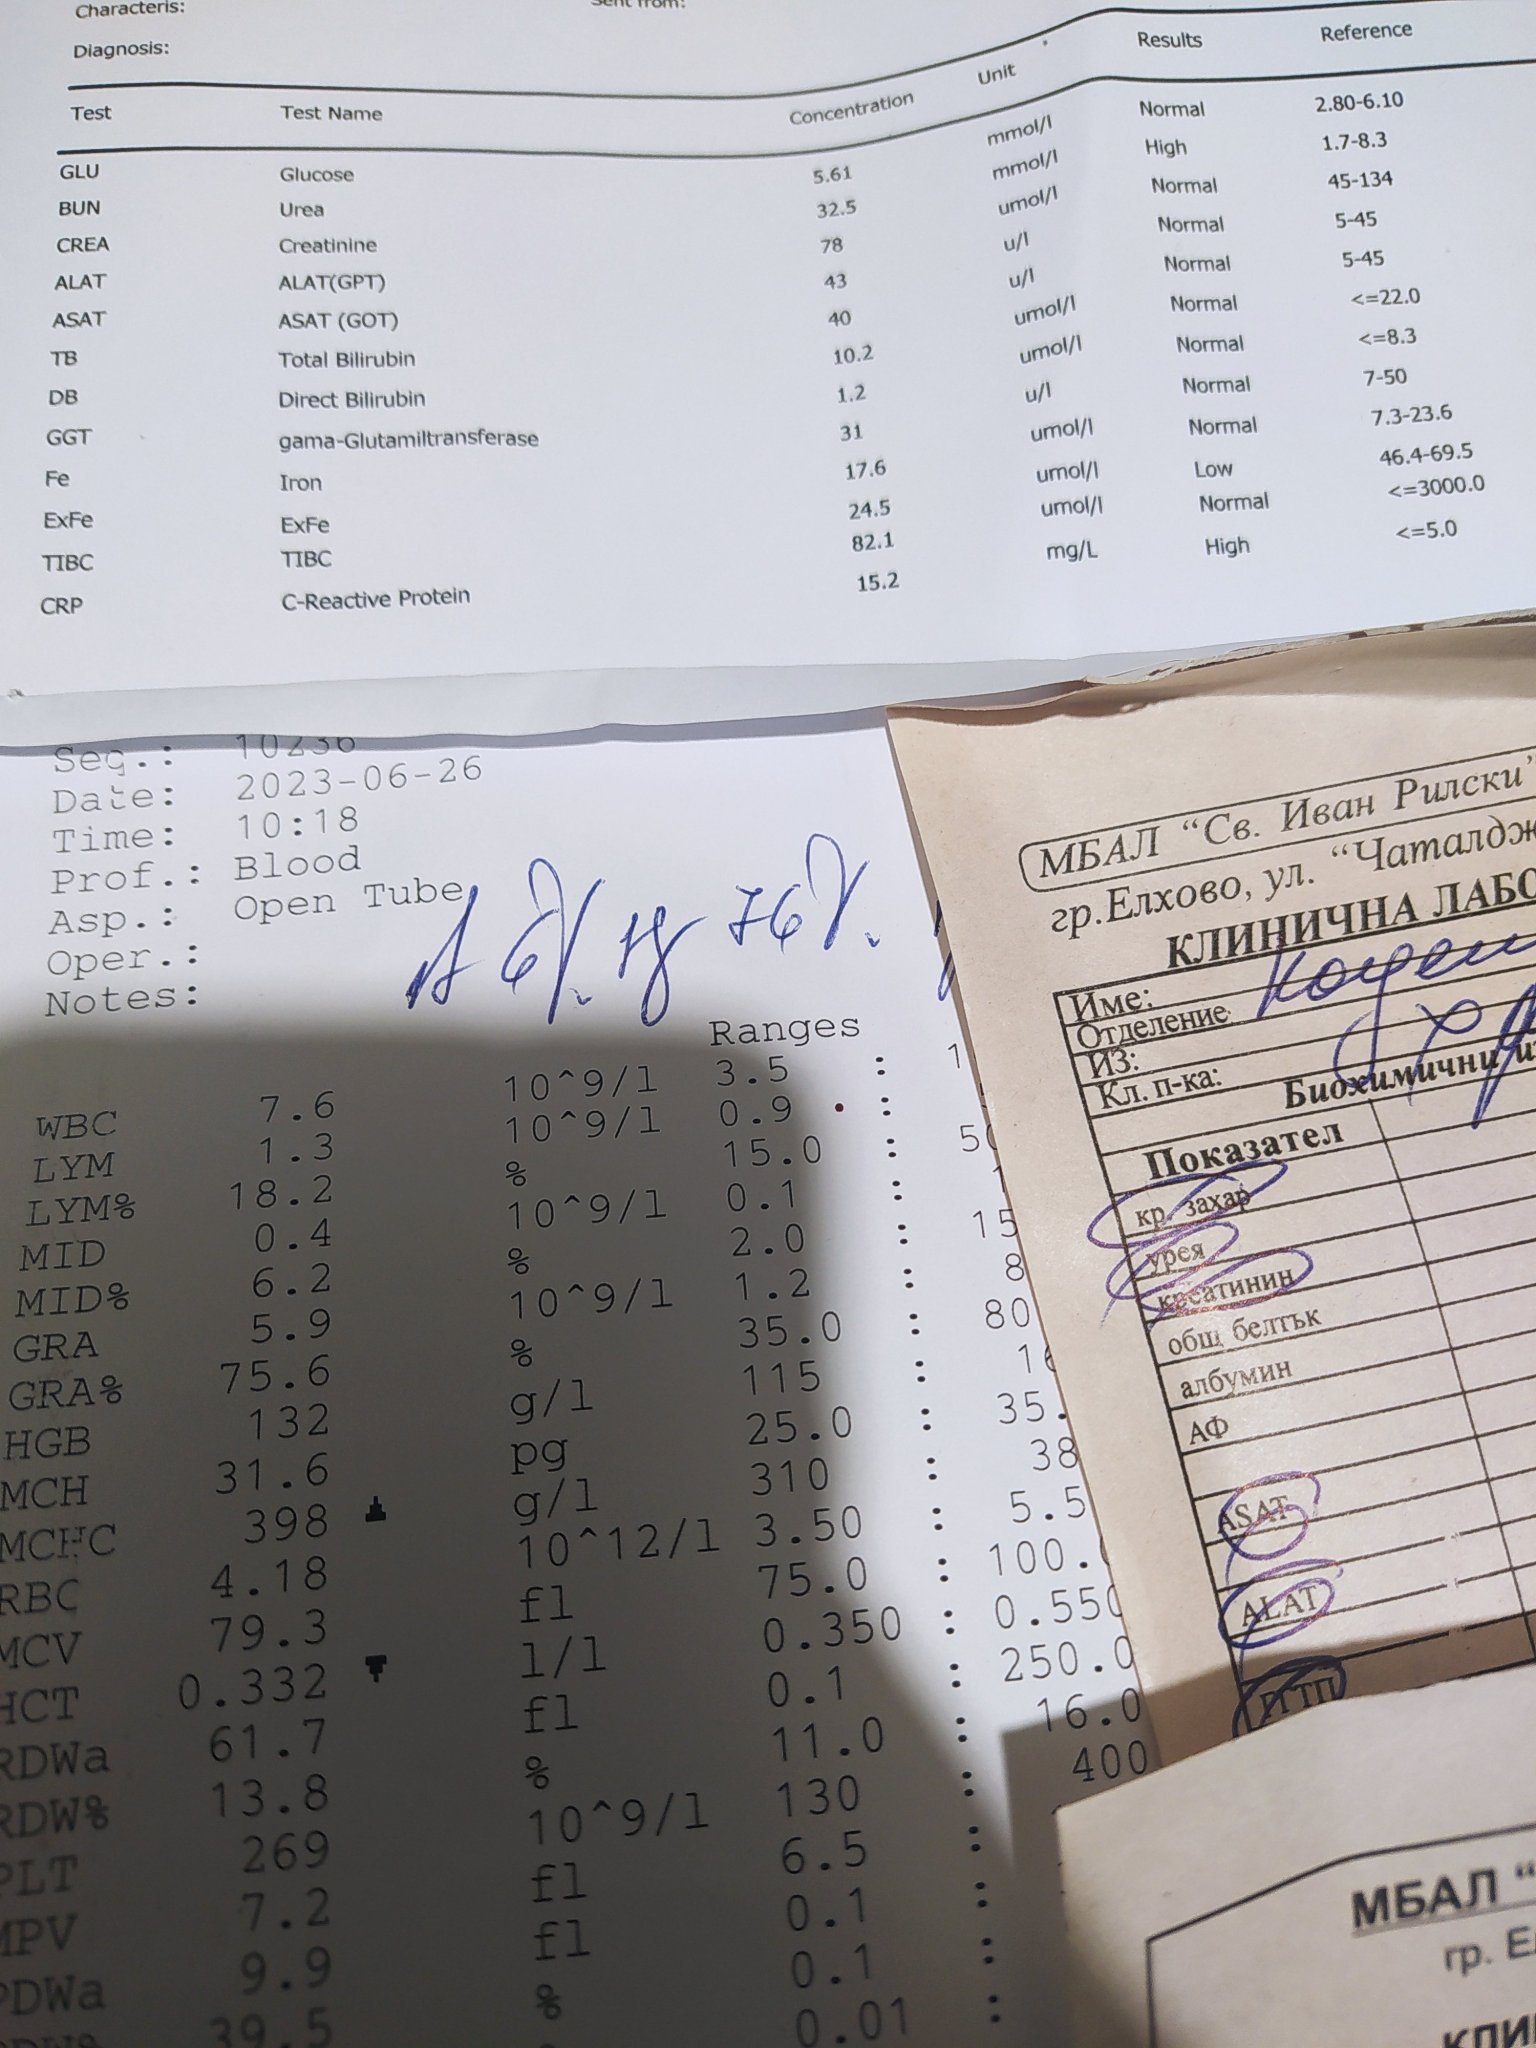 Characteris:
Sent from:
Diagnosis:
Test Test Name Concentration Unit Results Reference
GLU Glucose 5.61 mmol/l Normal 2.80-6.10
BUN Urea 32.5 mmol/l High 1.7-8.3
CREA Creatinine 78 umol/l Normal 45-134
ALAT ALAT(GPT) 43 u/l Normal 5-45
ASAT ASAT (GOT) 40 u/l Normal 5-45
TB Total Bilirubin 10.2 umol/l Normal <=22.0
DB Direct Bilirubin 1.2 umol/l Normal <=8.3
GGT gama-Glutamiltransferase 31 u/l Normal 7-50
Fe Iron 17.6 umol/l Normal 7.3-23.6
ExFe ExFe 24.5 umol/l Low 46.4-69.5
TIBC TIBC 82.1 umol/l Normal <=3000.0
CRP C-Reactive Protein 15.2 mg/L High <=5.0
Seq.: 10236
Date: 2023-06-26
Time: 10:18
Prof.: Blood
Asp.: Open Tube
Oper.:
Notes:
6%. 76%.
Ranges
WBC 7.6 10^9/l 3.5 :
LYM 1.3 10^9/l 0.9 :
LYM% 18.2 % 15.0 :
MID 0.4 10^9/l 0.1 :
MID% 6.2 % 2.0 : 15
GRA 5.9 10^9/l 1.2 : 8
GRA% 75.6 % 35.0 : 80
HGB 132 g/l 115 : 16
MCH 31.6 pg 25.0 : 35.
MCHC 398 g/l 310 : 38
RBC 4.18 10^12/l 3.50 : 5.5
MCV 79.3 fl 75.0 : 100.
HCT 0.332 l/l 0.350 : 0.550
RDWa 61.7 fl 0.1 : 250.0
RDW% 13.8 % 11.0 : 16.0
PLT 269 10^9/l 130 : 400
MPV 7.2 fl 6.5 :
PDWa 9.9 fl 0.1 :
39.5 % 0.1 :
0.01 :
МБАЛ "Св. Иван Рилски"
гр.Елхово, ул. "Чаталдж
КЛИНИЧНА ЛАБО
Име:
Отделение
ИЗ:
Кл. п-ка:
Биохимични из
Показател
кр. захар
урея
креатинин
общ белтък
албумин
АФ
ASAT
ALAT
ГГТП
МБАЛ "
гр. Ел
КЛИН